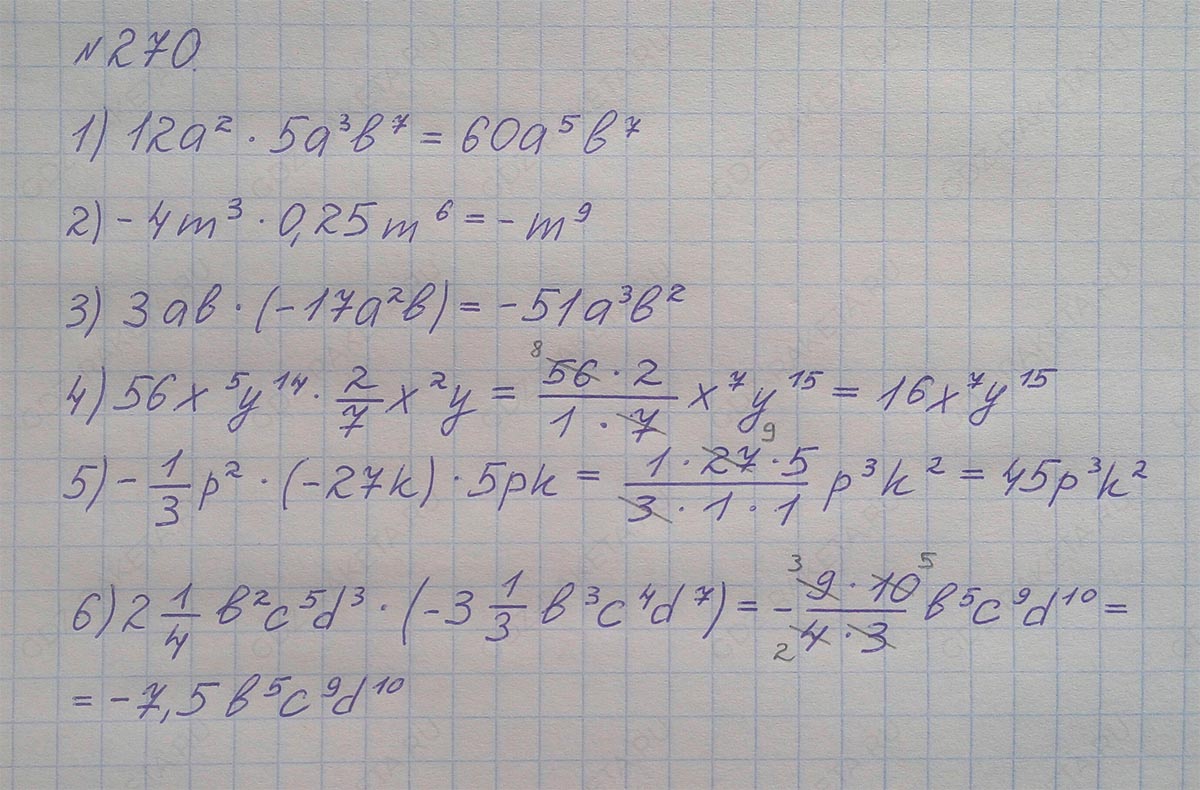 №270.
1) 12a² · 5a³b⁷ = 60a⁵b⁷
2) - 4m³ · 0,25m⁶ = - m⁹
3) 3ab · (-17a²b) = -51a³b²
4) 56x⁵y¹⁴ · 2/7 x²y = (⁸56 · 2)/(1 · 7) x⁷y¹⁵ = 16x⁷y¹⁵
5) - 1/3 p² · (-27k) · 5pk = (1 · 27⁹ · 5)/(3 · 1 · 1) p³k² = 45p³k²
6) 2 1/4 b²c⁵d³ · (-3 1/3 b³c⁴d⁷) = - (³9 · 10⁵)/(₂4 · 3) b⁵c⁹d¹⁰ =
= -7,5b⁵c⁹d¹⁰
GDZ-RAKETA.RU